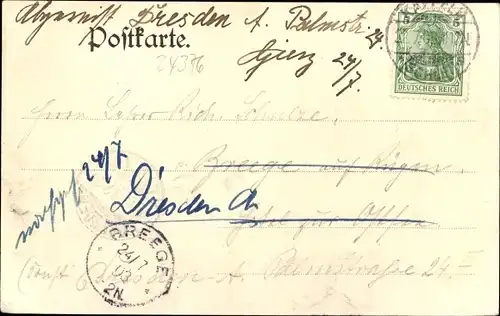 Abgereist Dresden A. Palmstr. 24.
Postkarte.
24/7.
24386
5 5
DEUTSCHES REICH
Herrn Lehrer Rich. Schulze.
Breege auf Rügen.
24/7
Dresden A
Hotel zur Ostsee.
BREEGE
24/7
03
2N.
Dresden-A. Palmstrasse 24. II